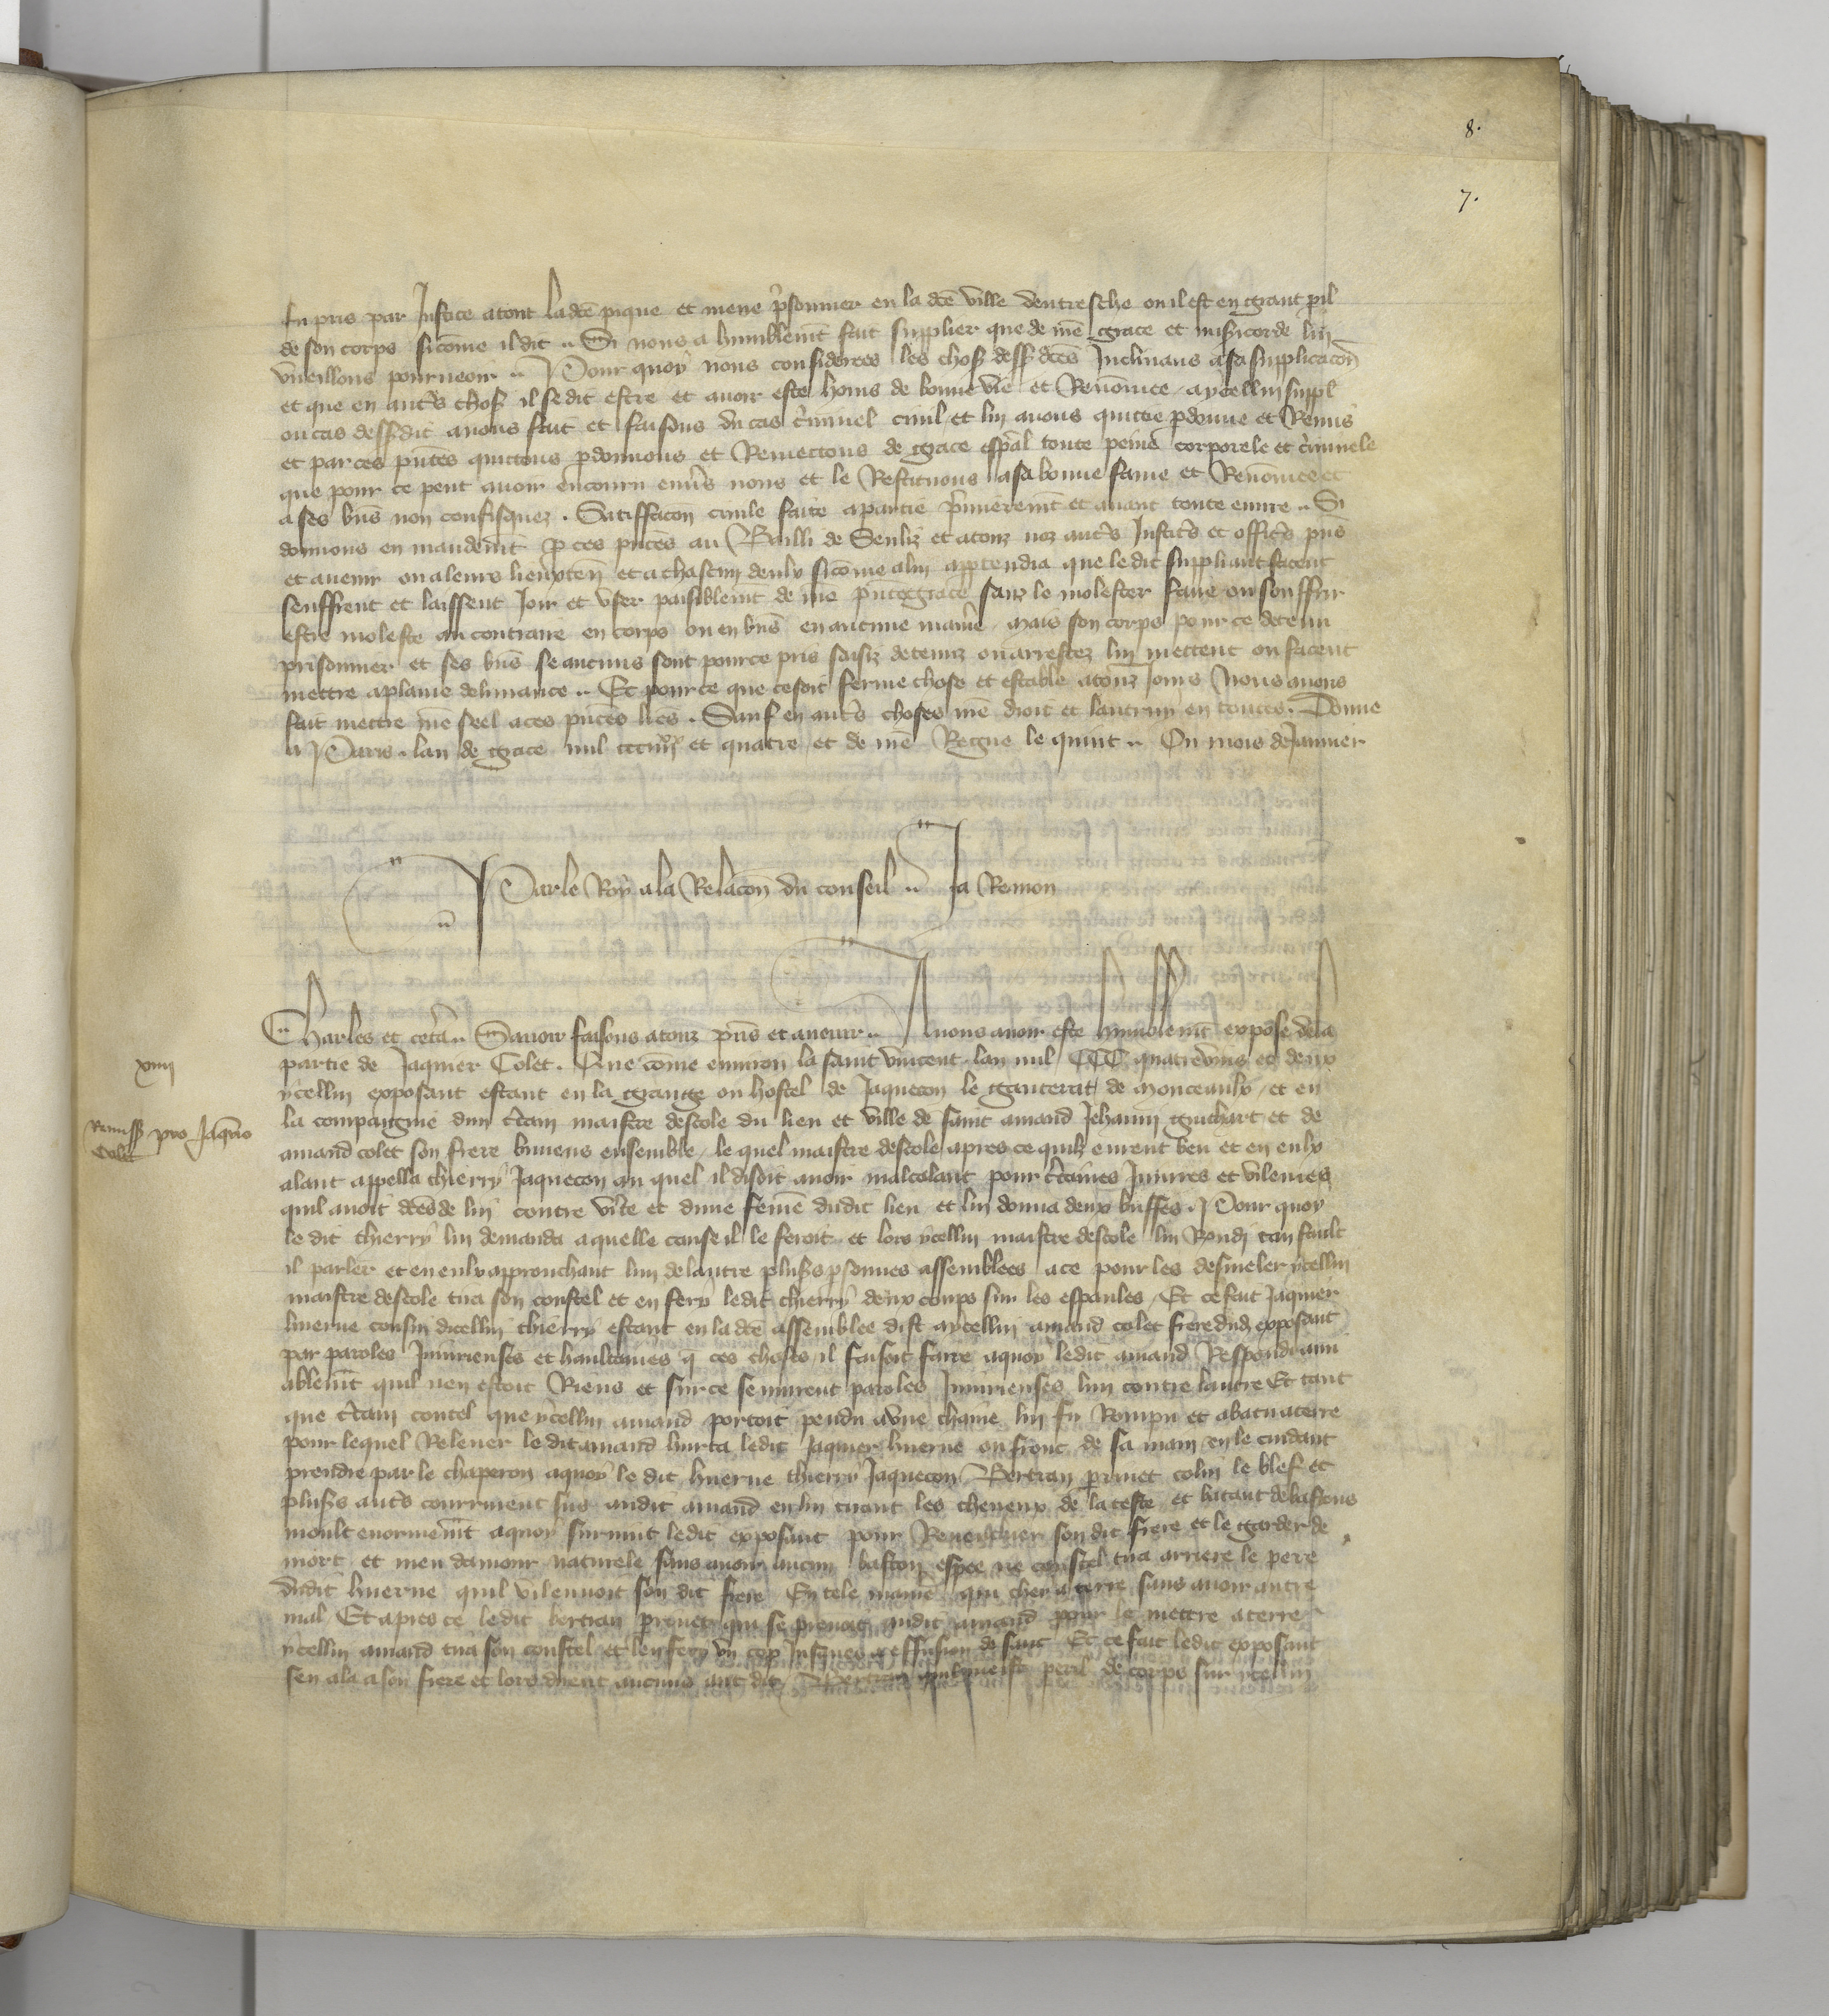 8.
7.
fu pris par Justice atout ladce pique et mene prsonnier en la dce ville dentresche ou il est en grant pil
de son corps sicōme il dit .. Si nous a humblemt fait supplier que de nre grace et misicorde lui
vueillons pourueoir .. Pour quoy nous considerees les chos dessdces Inclinans a sa supplicacon
et que en autrs chos il se dit estre et auoir este homs de bonne vie et Renōmee aycellui suppl
ou cas dessdit auons fait et faisons du cas criminel ciuil et lui auons quicte pdonne et Remis
et par ces pntes quictons pdonnons et Remectons de grace espal toute peine corporele et criminele
que pour ce peut auoir encouru enuers nous et le Restituons a sa bonne fame et Renōmee et
a ses bns non confisquez . Satiffacon ciuile faite a partie primieremt et auant toute euure .. Si
donnons en mandemt p ces pntes au Bailli de Senliz et atouz noz autrs Justicrs et officrs pns
et auenir ou a leurs lieuxten et a chascun deulx sicōme a lui apptendra que le dit suppliant facent
seuffrent et laissent Joir et vser paisiblemt de nre pnte grace sanz le molester faire ou souffrir
estre moleste au contraire en corps ou en bns en aucune manre mais son corps pour ce detenu
prisonnier et ses bns se aucuns sont pource pris saisiz detenuz ou arrestez lui mettent ou facent
mettre a plaine deliurance .. Et pource que ce soit ferme chose et estable atouz jours Nous auons
fait mettre nre seel a ces pntes lres . Sauf en autrs choses nre droit et lautruy en toutes . Donne
a Paris . lan de grace mil ccciiijxx et quatre et de nre Regne le quint .. Ou mois de Januier
Par le Roy a la Relacon du conseil .. Ja Remon
Charles et cetra .. Sauoir faisons atouz pns et auenir .. A nous auoir este humblemt expose de la
xiiij
partie de Jaquier Colet . Que cōme enuiron la saint vincent lan mil CCC quatrevins et deux
ycellui exposant estant en la grange ou hostel de Jaquecon le de Monceaulx et en
Remiss pro Jaquero
Colet
la compaignie dun crtain maistre descole du lieu et ville de saint amand Jehann guichart et de
amand colet son frere buuens ensemble le quel maistre descole apres ce quilz eurent beu et en eulx
alant appella thierry Jaquecon au quel il disoit auoir maltalant pour crtaines Iniures et vilenies
quil auoit dces de lui contre vrite et dune feme dudit lieu et lui donna deux buffes . Pour quoy
le dit thierry lui demanda a quelle cause il le feroit et lors ycellui maistre descole lui Rondi ten fault
il parler et en eulx approuchant lun de lautre plusrs psonnes assemblees a ce pour les desmeler ycellui
maistre descole tira son coustel et en fery ledit thierry deux coups sur les espaules Et ce fait Jaquier
huerne cousin dicellui thierry estant en la dce assemblee dist aycellui amand colet frere dud exposant
par paroles Iniurieuses et haultaines q ces choses il faisoit faire a quoy ledit amand Respondi ami
ablemt quil nen estoit Riens et sur ce se murent paroles Iniurieuses lun contre lautre Et tant
que crtain coutel que ycellui amand portoit pendu a vne chaine lui fu Rompu et abatu a terre
pour lequel Releuer le dit amand hurta ledit Jaquier huerne ou front de sa main en le cuidant
prendre par le chaperon a quoy le dit huerne thierry Jaquecon Bertran colin le blef et
plusrs autrs coururent sus audit amand en lui tirant les cheueux de la teste et batant de bastons
moult enormemt a quoy suruint ledit exposant pour Reuenchier son dit frere et le garder de
mort et meu damour naturele sans auoir aucun baston espee ne coustel tira arriere le pere
dudit huerne quil vilennoit son dit frere En tele manre qui chey a terre sans auoir autre
mal Et apres ce ledit bertran qui se prenoit audit amand pour le mettre a terre
ycellui amand tira son coustel et len fery vn cop Jusques a effusion de sanc Et ce fait ledit exposant
sen ala a son frere et lors dirent aucuns audit Bertran peril de corps sur ycellui